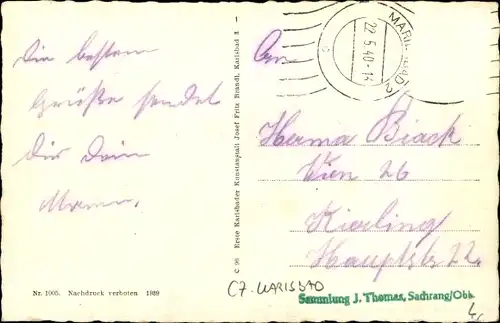 Die besten
Grüße sendet
Dir Dein
An
MARIENBAD 2
22.5.40-14
Herma Biack
Wien 26
Kierling
Hauptstr 22.
C 96 Erste Karlsbader Kunstanstalt Josef Fritz Brandl, Karlsbad 3 1
Nr. 1005. Nachdruck verboten 1939
CZ-KARLSBAD
Sammlung J. Thomas, Sachrang/Obb.